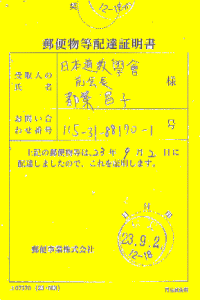 郵便物等配達証明書
受取人の
氏名
日本道教學會
都築 晶子
様
お問い合
わせ番号
115-31-88170-1
号
上記の郵便物等は、23年9月2日に
配達しましたので、これを証明します。
郵便事業株式会社
23.9.2
12-18